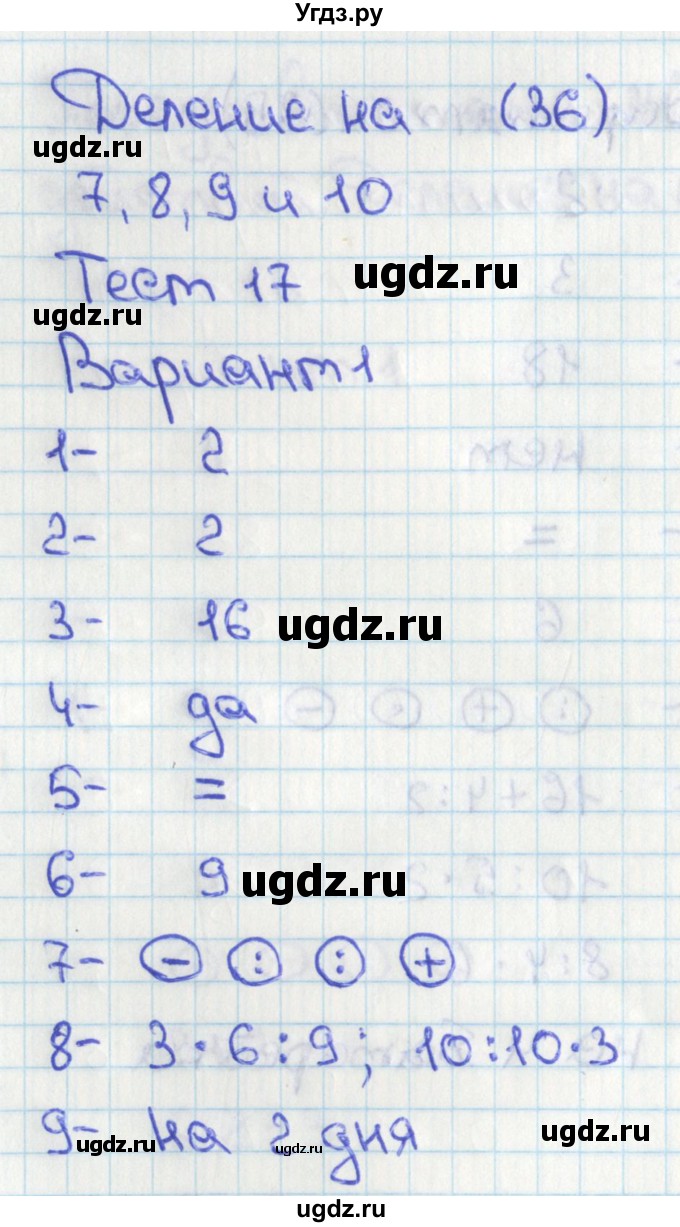 Угдз.ру
Деление на (36)
ugdz.ru
7, 8, 9 и 10
Тест 17 ugdz.ru
ugdz.ru
Вариант 1
1- 2
2- 2
3- 16 ugdz.ru
4- да
5- =
6- 9 ugdz.ru
7- - : : +
8- 3 · 6 : 9 ; 10 : 10 · 3
9- на 2 дня
ugdz.ru ugdz.ru ugdz.ru
ugdz.ru